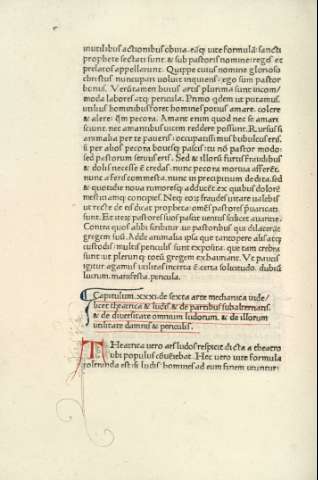 inutilibus actionibus ebria. eaq; vite formula sancti
prophete sectati sunt. & sub pastoris nomine reges et
prelatos appellarunt. Quippe cuius nomine gloriosa
christus nuncupari voluit inquiens. ego sum pastor
bonus. Verutamen huius artis plurima sunt incom/
moda labores atq; pericula. Primo qdem ut putamus.
utilius hominibus foret homines potius amare. colere
& alere. qm pecora. Amant enim quod nec se amari
sciunt. nec amantibus vicem reddere possunt. Rursus si
animalia per te paveris. occupatissimus bubulcus eris.
si per alios pecora bovesq; pasci
sed pastorum servus eris. Sed & illorum furtis fraudibus
& dolis necesse est credas. nunc pecora mortua afferent.
nunc a feris commesta. nunc in precipitium dedita. sed
& quotidie nova rumoresq; adducet. ex quibus dolorem
mestitiamq; concipies. Nec eos fraudes vitare valebis
ut recte de eis dicat propheta. omnes pastores
sunt. Et iterum pastores suos pascet ventus scilicet avaritie.
Contra quos alibi scribitur. ve pastoribus qui dilacerant
gregem suum. Adde animalia ipsa que tantopere alis atq;
custodis. multis periculis sunt exposita. que tam crebra
sunt ut plerunq; totum gregem exhauriant. Ve paucis
igitur agamus utilitas incerta. certa solicitudo. dubium
lucrum. manifesta pericula.
Capitulum .xxxi. de sexta arte mechanica vide/
licet theatrica & ludis & de partibus subalternatis.
& de diversitate omnium ludorum. & de illorum
utilitate damnis & periculis.
THeatrica vero ars ludos respicit dicta a theatro
ubi populus conveniebat. Hec vero vite formula
ostrendo est & ludis homines ad eum finem utuntur